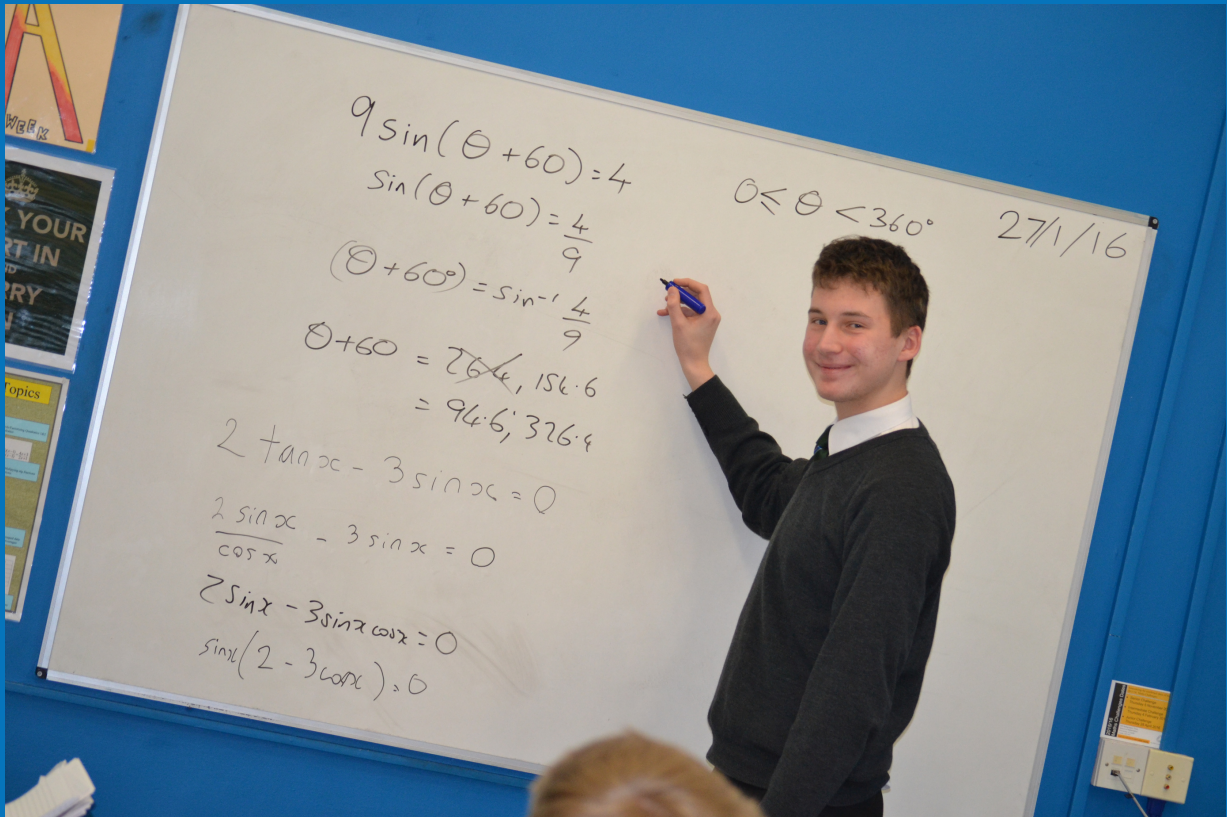 WEEK
YOUR
RT IN
RRY
Topics
9 sin(θ + 60) = 4
0 ≤ θ < 360°
27/1/16
sin(θ + 60) = 4/9
(θ + 60°) = sin⁻¹ 4/9
θ + 60 = 26.4, 154.6
= 94.6, 326.4
2 tan x - 3 sin x = 0
2 sin x / cos x - 3 sin x = 0
2 sin x - 3 sin x cos x = 0
sin x (2 - 3 cos x) = 0